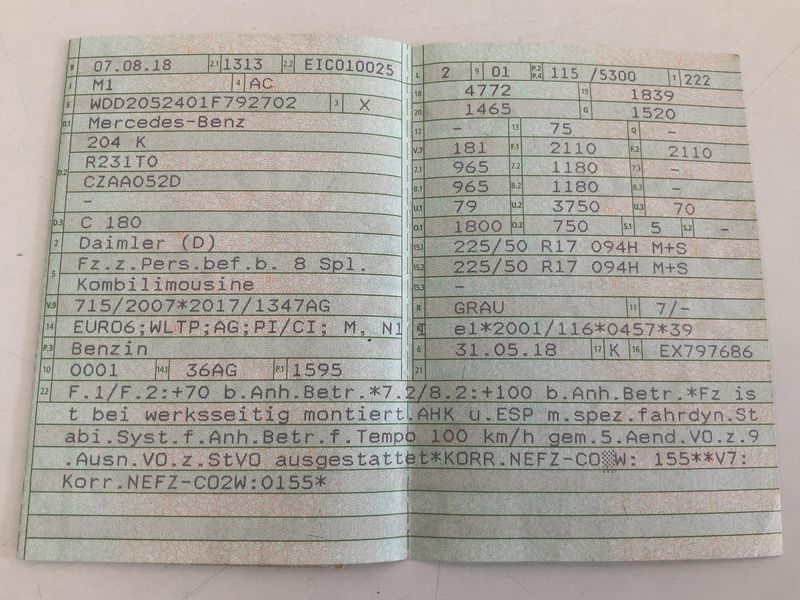 B 07.08.18 2.1 1313 2.2 EIC010025
J M1 4 AC
E WDD2052401F792702 3 X
D.1 Mercedes-Benz
204 K
D.2 R231T0
CZAA052D
-
D.3 C 180
2 Daimler (D)
5 Fz.z.Pers.bef.b. 8 Spl.
Kombilimousine
V.9 715/2007*2017/1347AG
14 EURO6;WLTP;AG;PI/CI; M, N1 I
P.3 Benzin
10 0001 14.1 36AG P.1 1595
L 2 9 01 P.2 P.4 115 /5300 T 222
18 4772 19 1839
20 1465 G 1520
12 - 13 75 Q -
V.7 181 F.1 2110 F.2 2110
7.1 965 7.2 1180 7.3 -
8.1 965 8.2 1180 8.3 -
U.1 79 U.2 3750 U.3 70
O.1 1800 O.2 750 S.1 5 S.2 -
15.1 225/50 R17 094H M+S
15.2 225/50 R17 094H M+S
15.3 -
R GRAU 11 7/-
K e1*2001/116*0457*39
6 31.05.18 17 K 16 EX797686
21
22 F.1/F.2:+70 b.Anh.Betr.*7.2/8.2:+100 b.Anh.Betr.*Fz is
t bei werksseitig montiert.AHK u.ESP m.spez.fahrdyn.St
abi.Syst.f.Anh.Betr.f.Tempo 100 km/h gem.5.Aend.VO.z.9
.Ausn.VO.z.StVO ausgestattet*KORR.NEFZ-CO W: 155**V7:
Korr.NEFZ-CO2W:0155*